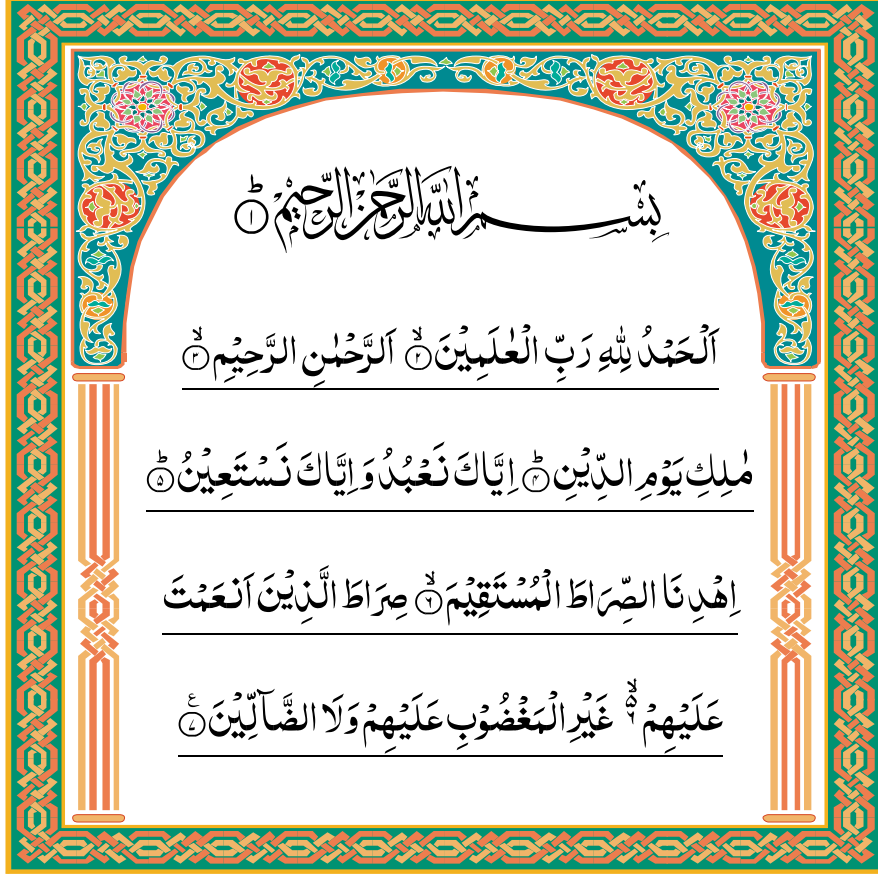 بِسْمِ اللّٰهِ الرَّحْمٰنِ الرَّحِيْمِ ؕ﴿۱﴾
اَلْحَمْدُ لِلّٰهِ رَبِّ الْعٰلَمِيْنَ ۙ﴿۲﴾ اَلرَّحْمٰنِ الرَّحِيْمِ ۙ﴿۳﴾
مٰلِكِ يَوْمِ الدِّيْنِ ؕ﴿۴﴾ اِيَّاكَ نَعْبُدُ وَ اِيَّاكَ نَسْتَعِيْنُ ؕ﴿۵﴾
اِهْدِنَا الصِّرَاطَ الْمُسْتَقِيْمَ ۙ﴿۶﴾ صِرَاطَ الَّذِيْنَ اَنعَمْتَ
عَلَيْهِمْ ۙ۬ۦ غَيْرِ الْمَغْضُوْبِ عَلَيْهِمْ وَلَا الضَّآلِّيْنَ ﴿۷﴾ ع